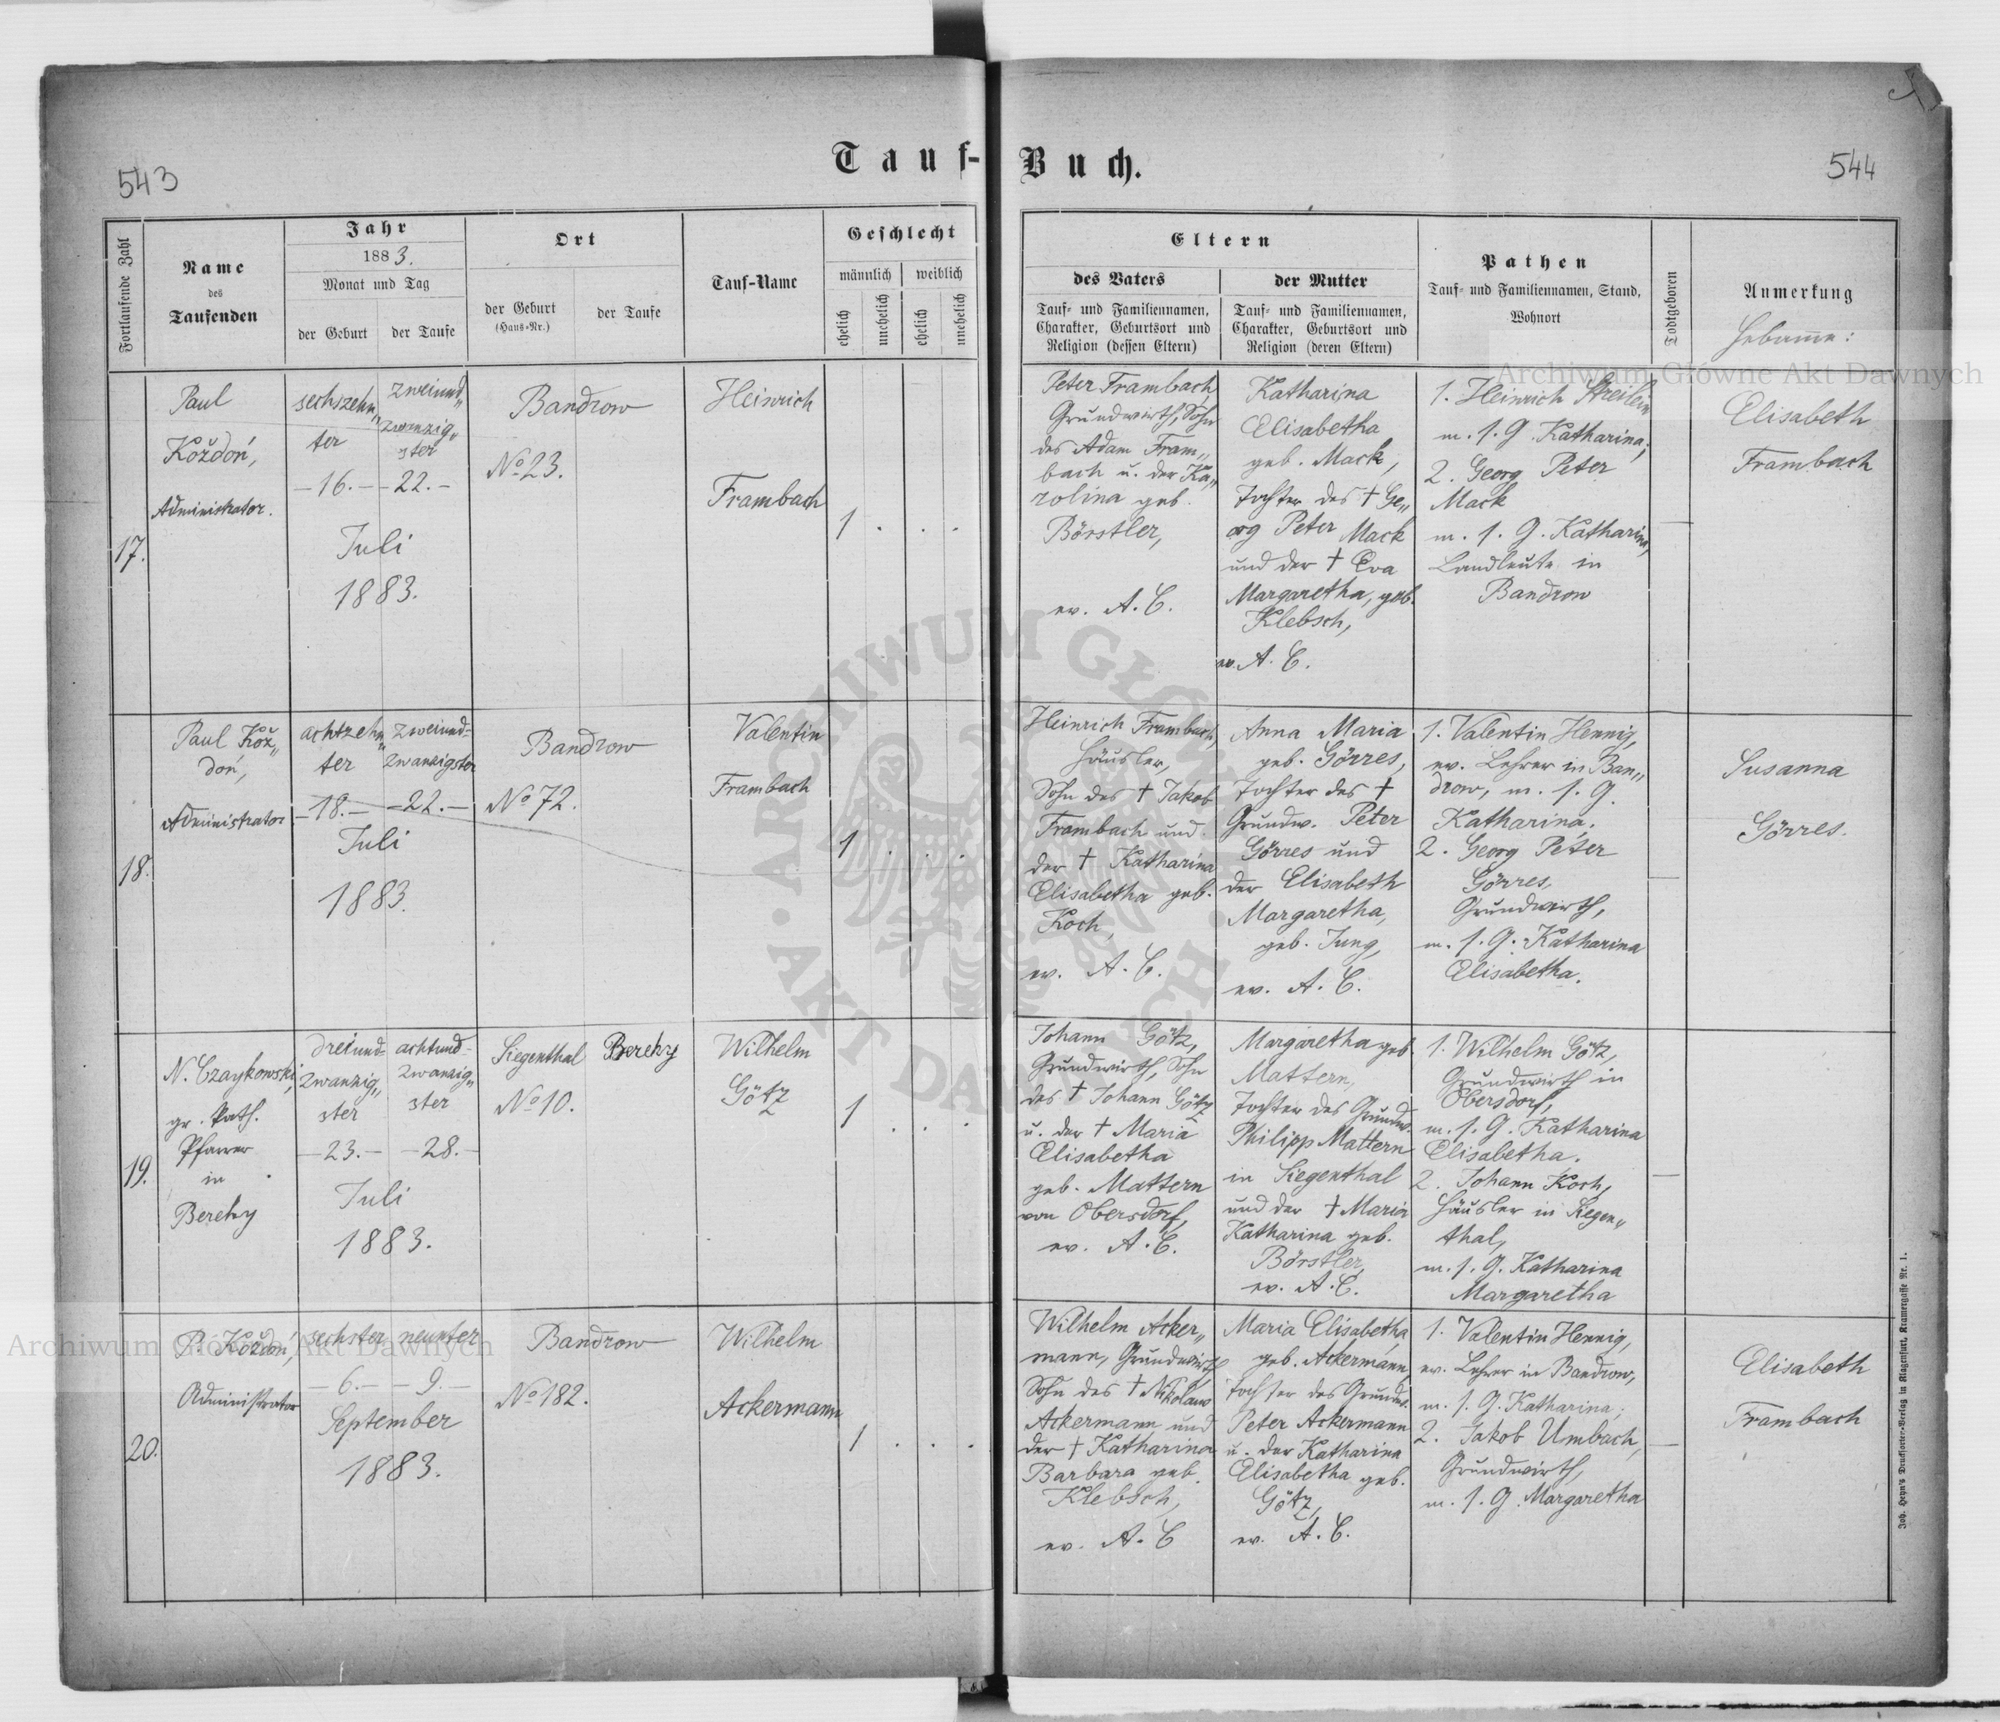 543
Tauf-Buch.
544
Fortlaufende Zahl
Name
des
Taufenden
Jahr
1883.
Monat und Tag
der Geburt
der Taufe
Ort
der Geburt
(Haus-Nr.)
der Taufe
Tauf-Name
Geschlecht
männlich
weiblich
ehelich
unehelich
ehelich
unehelich
Eltern
des Vaters
Tauf- und Familiennamen,
Charakter, Geburtsort und
Religion (dessen Eltern)
der Mutter
Tauf- und Familiennamen,
Charakter, Geburtsort und
Religion (deren Eltern)
Pathen
Tauf- und Familiennamen, Stand,
Wohnort
Todtgeboren
Anmerkung
Hebamme:
17.
Paul
Kożdoń,
Administrator.
sechszehn„
ter
-16.-
zweiund„
zwanzig„
ster
-22.-
Juli
1883.
Bandrow
No 23.
Heinrich
Frambach
1 . . .
Peter Frambach,
Grundwirth, Sohn
des Adam Fram„
bach u. der Ka„
rolina geb.
Börstler,
ev. A. C.
Katharina
Elisabetha
geb. Mack,
Tochter des † Ge„
org Peter Mack
und der † Eva
Margaretha, geb.
Klebsch,
ev. A. C.
1. Heinrich Streilein
m. s. G. Katharina;
2. Georg Peter
Mack
m. s. G. Katharina,
Landleute in
Bandrow
Elisabeth
Frambach
18.
Paul Koż„
doń,
Administrator
achtzehn„
ter
-18.-
zweiund-
zwanzigster
-22.-
Juli
1883.
Bandrow
No 72.
Valentin
Frambach
1 . . .
Heinrich Frambach,
Häusler,
Sohn des † Jakob
Frambach und
der † Katharina
Elisabetha geb.
Koch,
ev. A. C.
Anna Maria
geb. Görres,
Tochter des †
Grundw. Peter
Görres und
der Elisabeth
Margaretha,
geb. Jung,
ev. A. C.
1. Valentin Hennig,
ev. Lehrer in Ban„
drow, m. s. G.
Katharina,
2. Georg Peter
Görres,
Grundwirth,
m. s. G. Katharina
Elisabetha.
Susanna
Görres.
19.
N. Czaykowski,
gr. kath.
Pfarrer
in
Berehy
dreiund-
zwanzig„
ster
-23.-
achtund-
zwanzig„
ster
-28.-
Juli
1883.
Siegenthal
No 10.
Berehy
Wilhelm
Götz
1 . . .
Johann Götz,
Grundwirth, Sohn
des † Johann Götz
u. der † Maria
Elisabetha
geb. Mattern
von Obersdorf,
ev. A. C.
Margaretha geb.
Mattern,
Tochter des Grundw.
Philipp Mattern
in Siegenthal
und der † Maria
Katharina geb.
Börstler,
ev. A. C.
1. Wilhelm Götz,
Grundwirth in
Obersdorf,
m. s. G. Katharina
Elisabetha.
2. Johann Koch,
Häusler in Siegen„
thal,
m. s. G. Katharina
Margaretha
20.
P. Kożdoń,
Administrator
sechster
-6.-
neunter
-9.-
September
1883.
Bandrow
No 182.
Wilhelm
Ackermann
1 . . .
Wilhelm Acker„
mann, Grundwirth,
Sohn des † Nikolaus
Ackermann und
der † Katharina
Barbara geb.
Klebsch,
ev. A. C
Maria Elisabetha,
geb. Ackermann,
Tochter des Grundw.
Peter Ackermann
u. der Katharina
Elisabetha geb.
Götz,
ev. A. C.
1. Valentin Hennig,
ev. Lehrer in Bandrow,
m. s. G. Katharina;
2. Jakob Umbach,
Grundwirth,
m. s. G. Margaretha
Elisabeth
Frambach
Joh. Heyn's Drucksorten-Verlag in Klagenfurt, Kramergasse Nr. 1.
Archiwum Główne Akt Dawnych
Archiwum Główne Akt Dawnych
ARCHIWUM GŁÓWNE AKT DAWNYCH